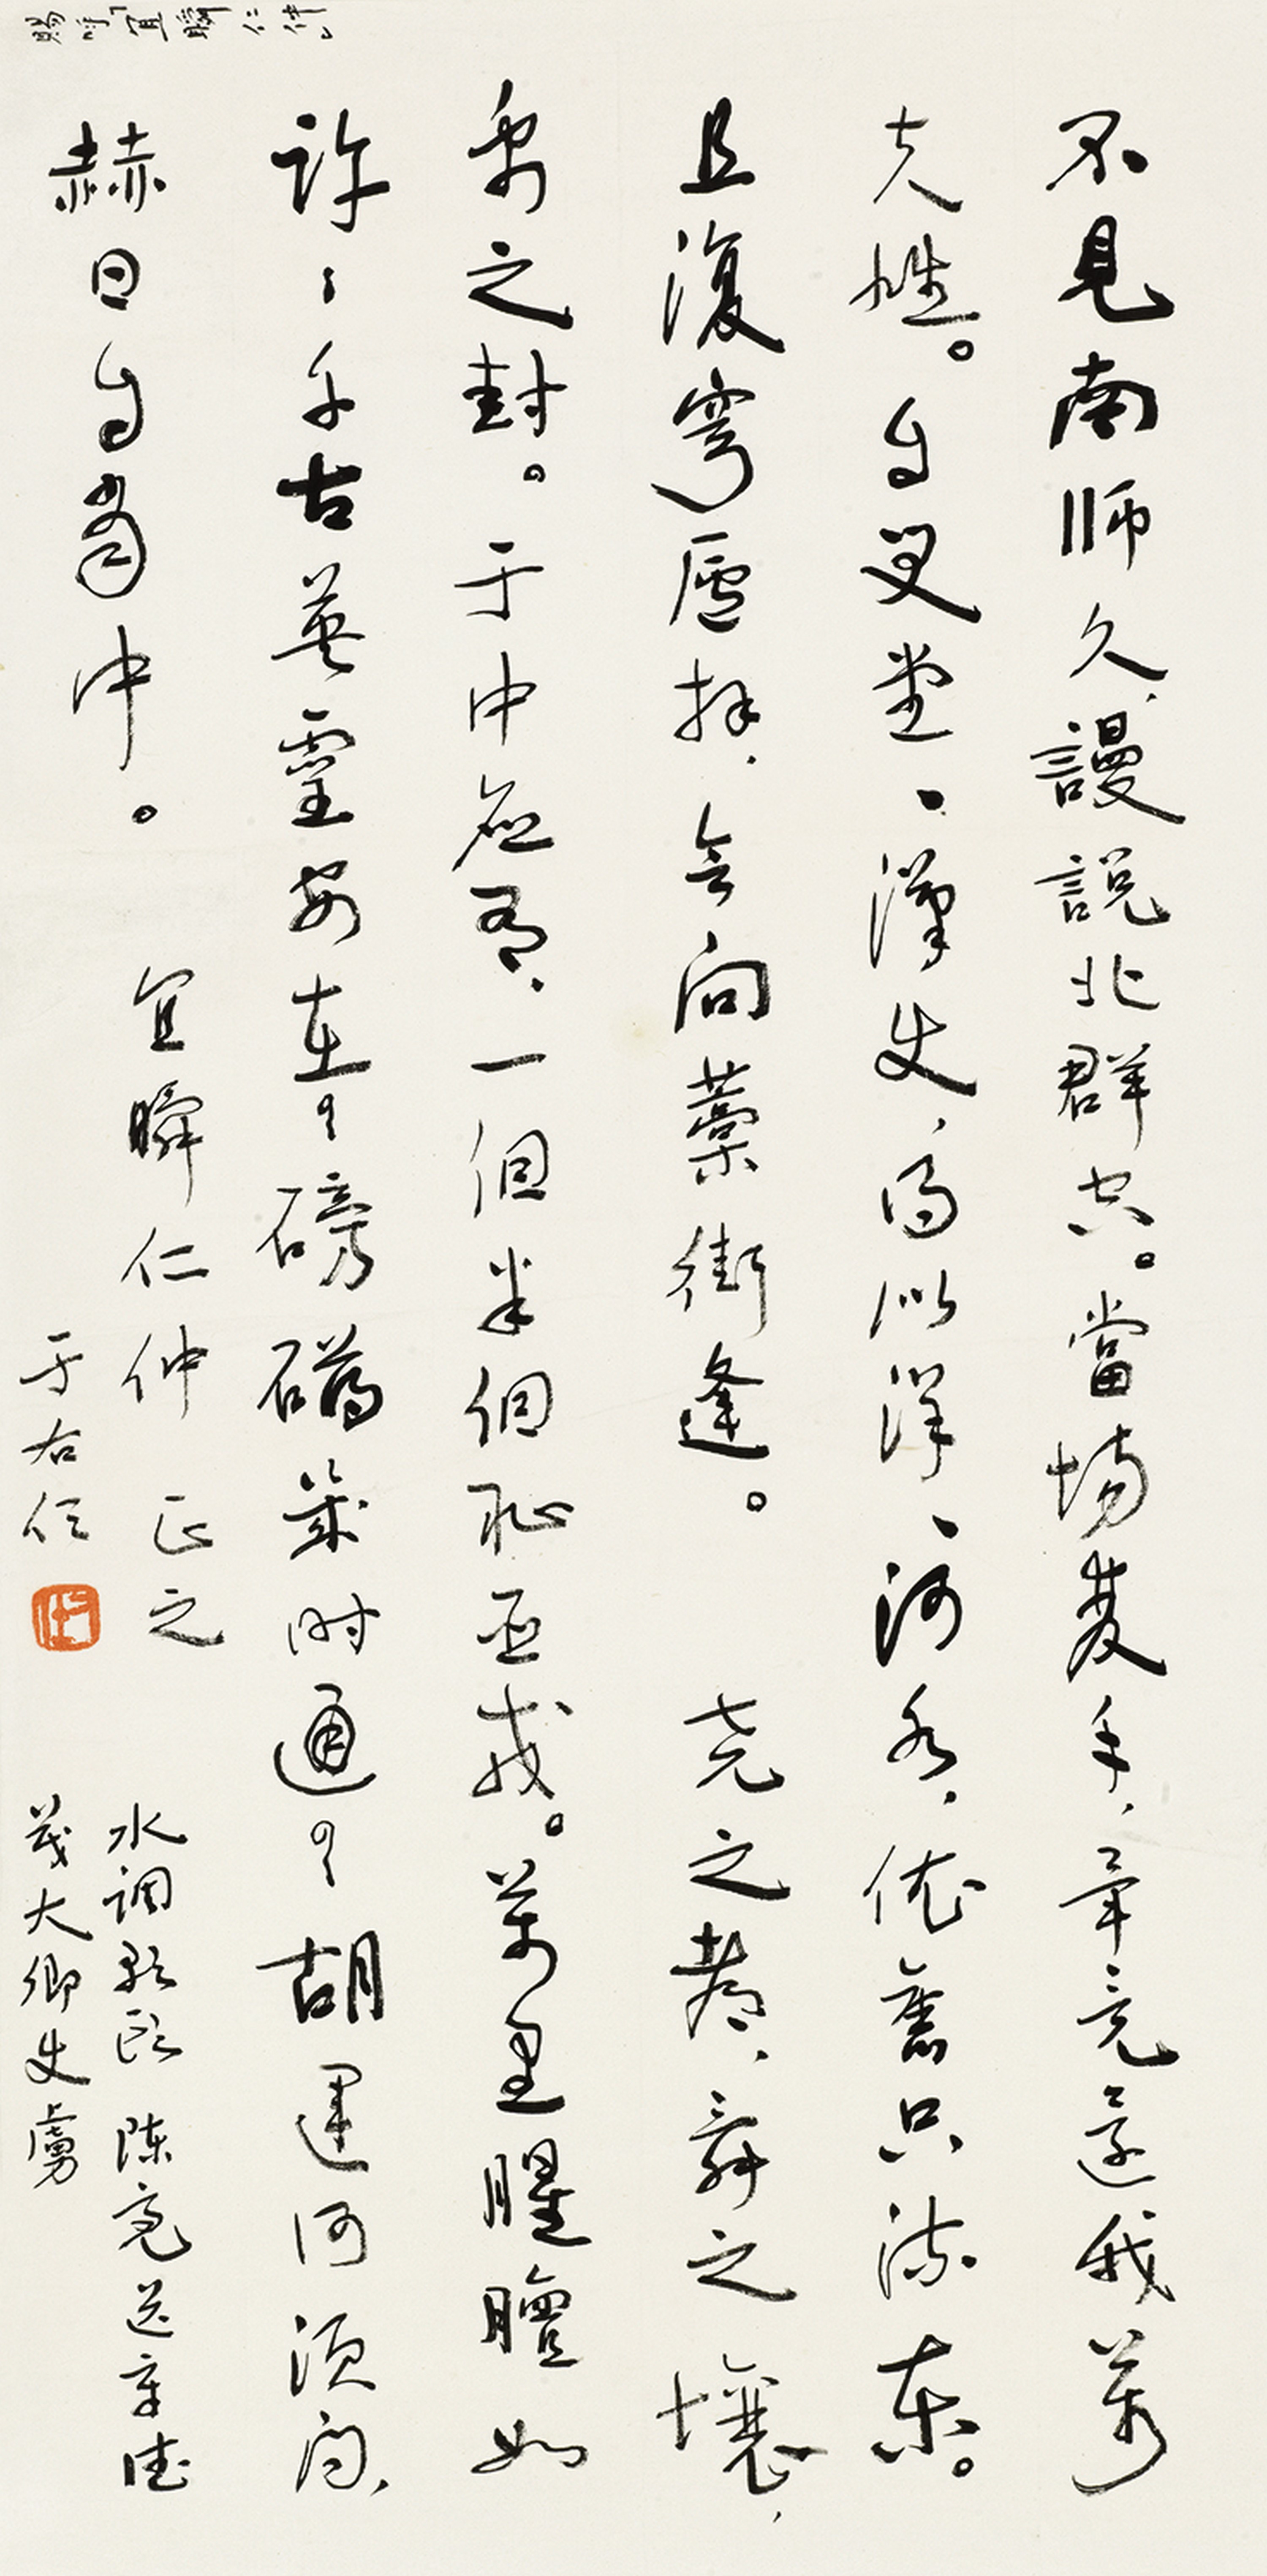 賜呼「宜瞬仁仲」
不見南師久、謾說北群空。當場隻手、畢竟還我萬
夫雄。自笑堂〻漢使、得似洋〻河水、依舊只流東。
且復穹廬拜、會向藁街逢。 堯之都、舜之壤、
禹之封。于中應有、一個半個恥臣戎。萬里腥膻如
許〻千古英靈安在？磅礴幾時通？胡運何須問、
赫日自當中。
宜瞬仁仲 正之
于右任
右任
水調歌頭 陳亮送章德
茂大卿使虜